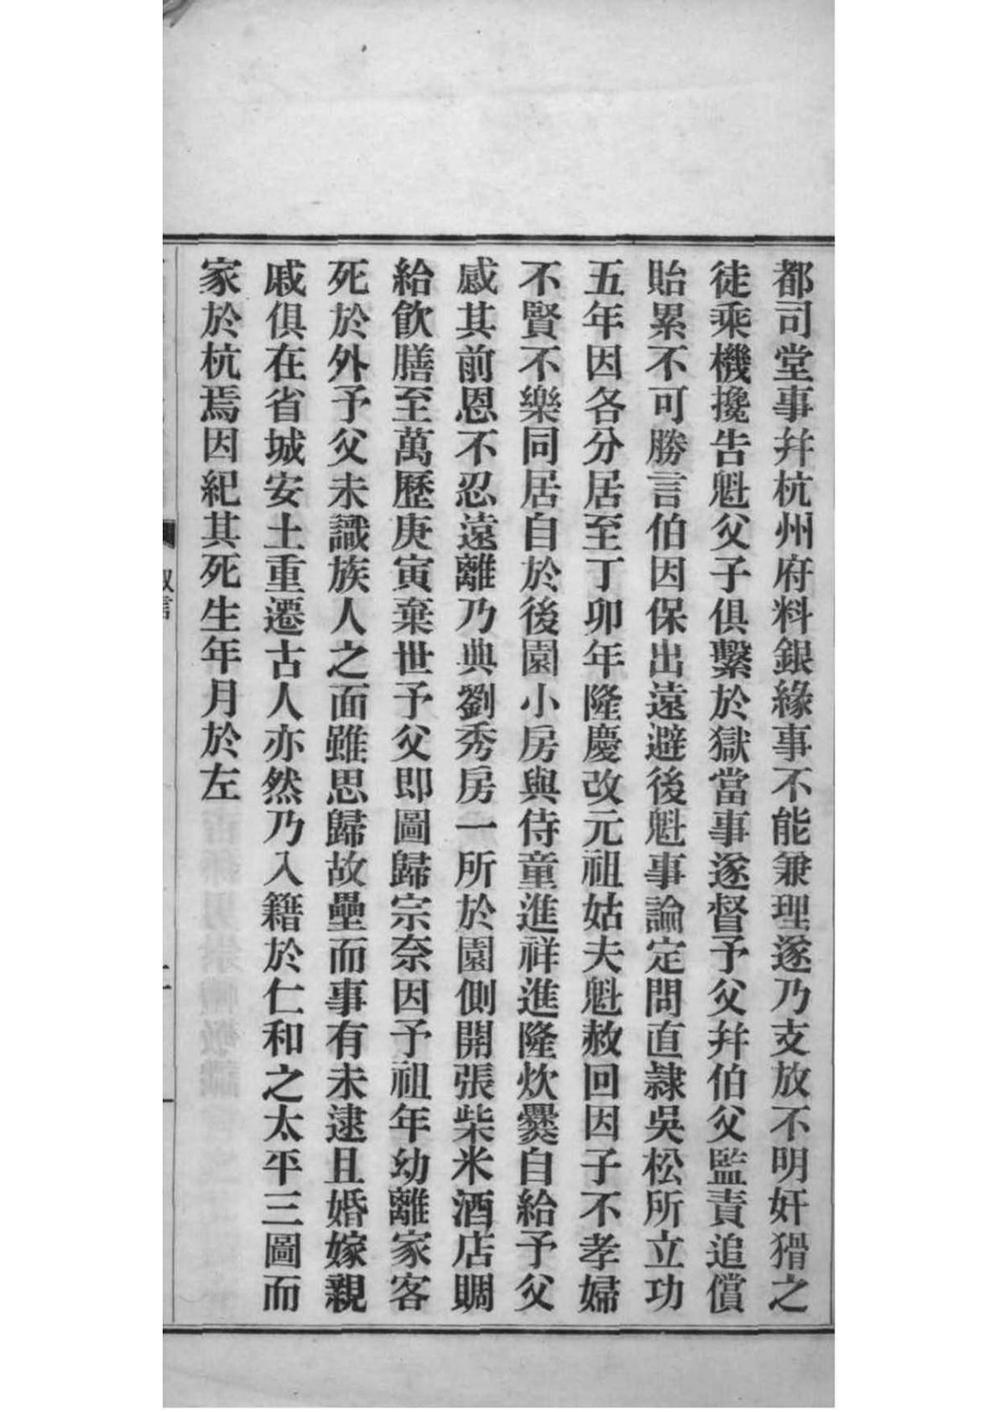 都司堂事幷杭州府料銀緣事不能兼理遂乃支放不明奸猾之
徒乘機攙告魁父子俱繫於獄當事遂督予父幷伯父監責追償
貽累不可勝言伯因保出遠避後魁事論定問直隷吳松所立功
五年因各分居至丁卯年隆慶改元祖姑夫魁赦回因子不孝婦
不賢不樂同居自於後園小房與侍童進祥進隆炊爨自給予父
感其前恩不忍遠離乃典劉秀房一所於園側開張柴米酒店賙
給飮膳至萬歷庚寅棄世予父即圖歸宗奈因予祖年幼離家客
死於外予父未識族人之面雖思歸故壘而事有未逮且婚嫁親
戚俱在省城安土重遷古人亦然乃入籍於仁和之太平三圖而
家於杭焉因紀其死生年月於左